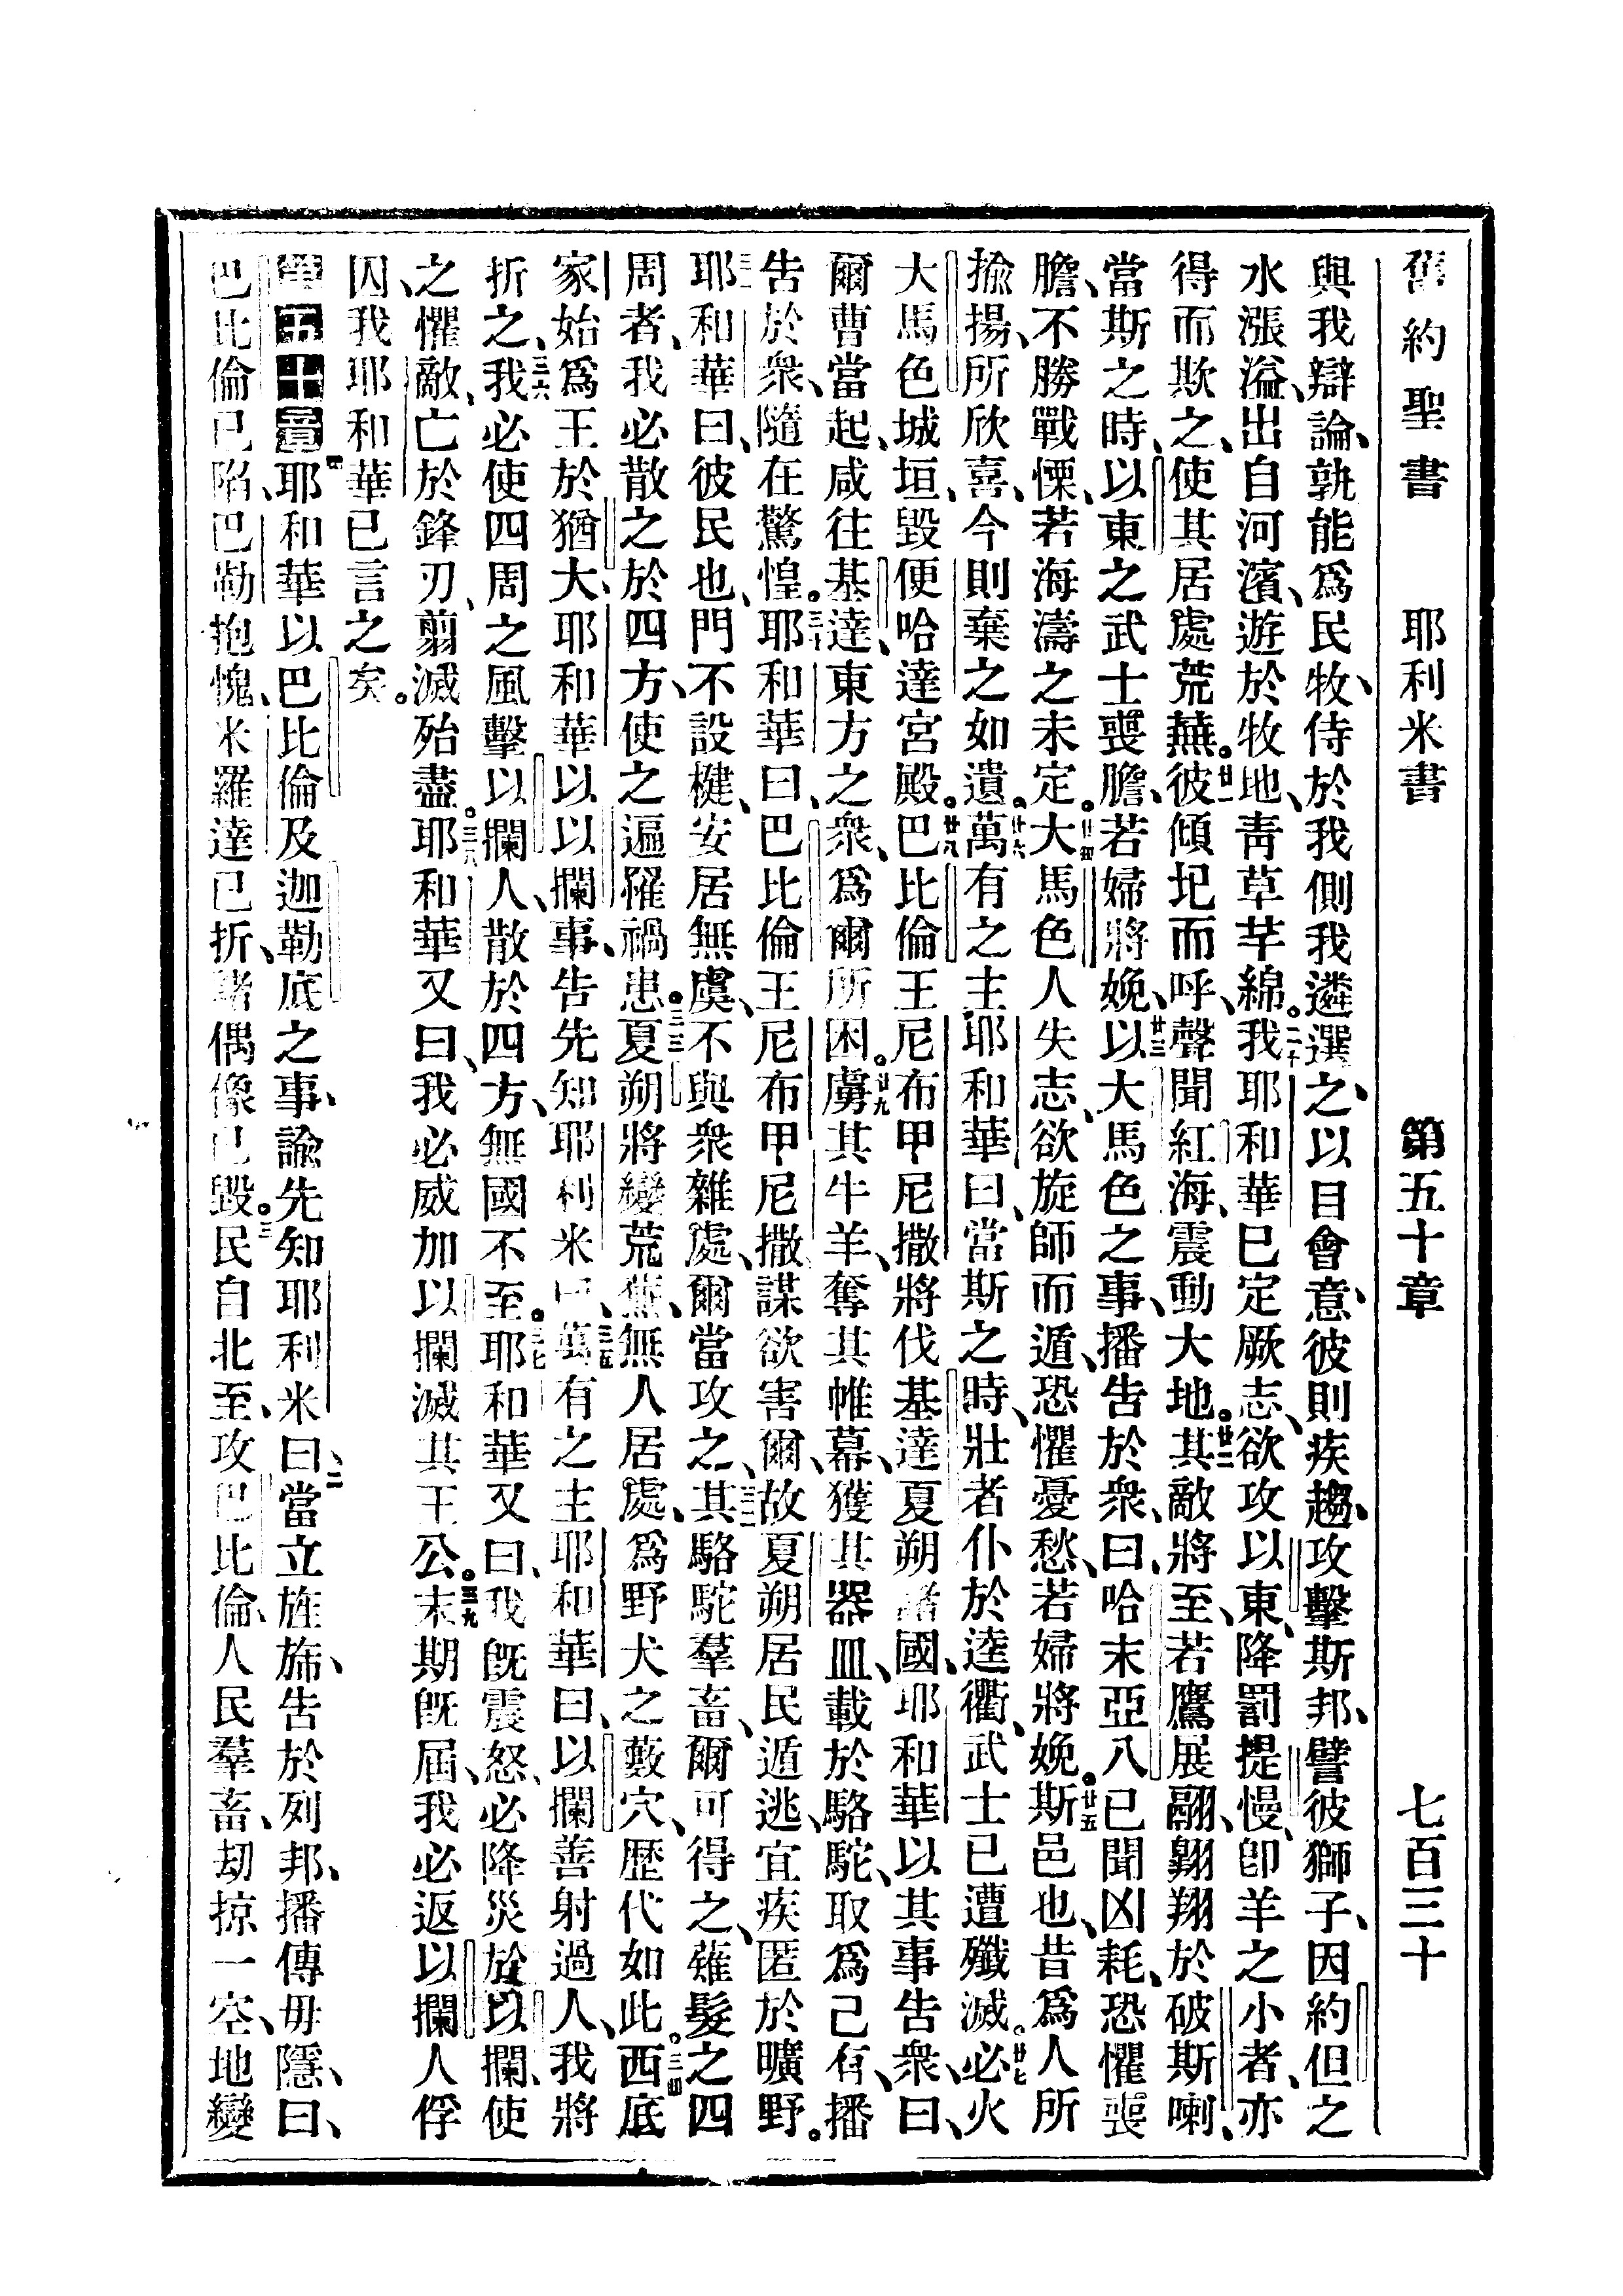 舊約聖書 耶利米書 第五十章 七百三十
與我辯論、孰能爲民牧、侍於我側、我遴選之、以目會意、彼則疾趨、攻擊斯邦、譬彼獅子、因約但之
水漲溢、出自河濱、遊於牧地、青草芊綿。二十我耶和華已定厥志、欲攻以東、降罰提慢、卽羊之小者、亦
得而欺之、使其居處荒蕪。廿一彼傾圮而呼、聲聞紅海、震動大地。廿二其敵將至、若鷹展翮、翱翔於破斯喇、
當斯之時、以東之武士喪膽、若婦將娩、廿三以大馬色之事、播告於衆、曰、哈末亞八已聞凶耗、恐懼喪
膽、不勝戰慄、若海濤之未定。廿四大馬色人失志、欲旋師而遁、恐懼憂愁、若婦將娩。廿五斯邑也、昔爲人所
揄揚、所欣喜、今則棄之如遺。廿六萬有之主耶和華曰、當斯之時、壯者仆於逵衢、武士已遭殲滅。廿七必火
大馬色城垣、毀便哈達宮殿。廿八巴比倫王尼布甲尼撒將伐基達夏朔諸國、耶和華以其事告衆、曰、
爾曹當起、咸往基達、東方之衆、爲爾所困。廿九虜其牛羊、奪其帷幕、獲其器皿、載於駱駝、取爲己有、播
告於衆、隨在驚惶。三十耶和華曰、巴比倫王尼布甲尼撒、謀欲害爾、故夏朔居民遁逃、宜疾匿於曠野。
三一耶和華曰、彼民也、門不設楗、安居無虞、不與衆雜處、爾當攻之、三二其駱駝羣畜、爾可得之、薙髮之四
周者、我必散之於四方、使之遍罹禍患。三三夏朔將變荒蕪、無人居處、爲野犬之藪穴、歷代如此。三四西底
家始爲王於猶大、耶和華以以攔事、告先知耶利米曰、三五萬有之主耶和華曰、以攔善射過人、我將
折之、三六我必使四周之風擊以攔人、散於四方、無國不至。三七耶和華又曰、我旣震怒、必降災於以攔、使
之懼敵、亡於鋒刃、翦滅殆盡。三八耶和華又曰、我必威加以攔、滅其王公。三九末期旣屆、我必返以攔人俘
囚、我耶和華已言之矣。
第五十章 一耶和華以巴比倫及迦勒底之事、諭先知耶利米曰、二當立旌旆、告於列邦、播傳毋隱、曰、
巴比倫已陷、巴勒抱愧、米羅達已折、諸偶像已毀。三民自北至、攻巴比倫、人民羣畜、刧掠一空、地變